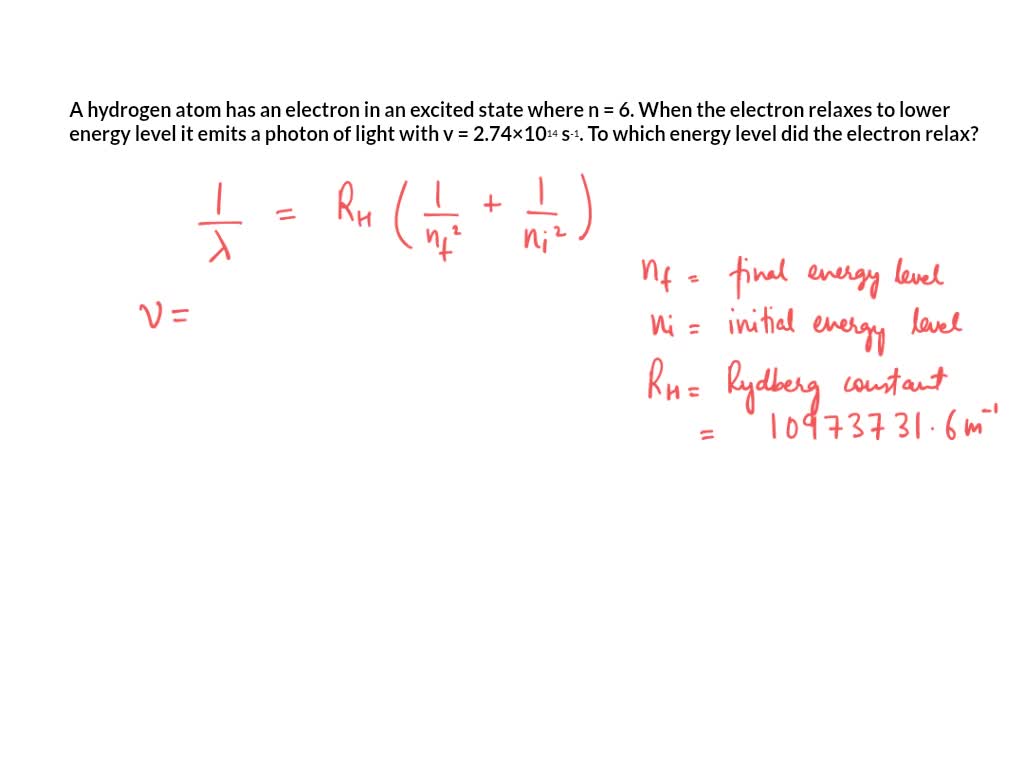 A hydrogen atom has an electron in an excited state where n = 6. When the electron relaxes to lower
energy level it emits a photon of light with v = 2.74×10¹⁴ s⁻¹. To which energy level did the electron relax?
1/λ = R_H ( 1/n_f² + 1/n_i² )
n_f = final energy level
ν =
n_i = initial energy level
R_H = Rydberg constant
= 10973731.6 m⁻¹